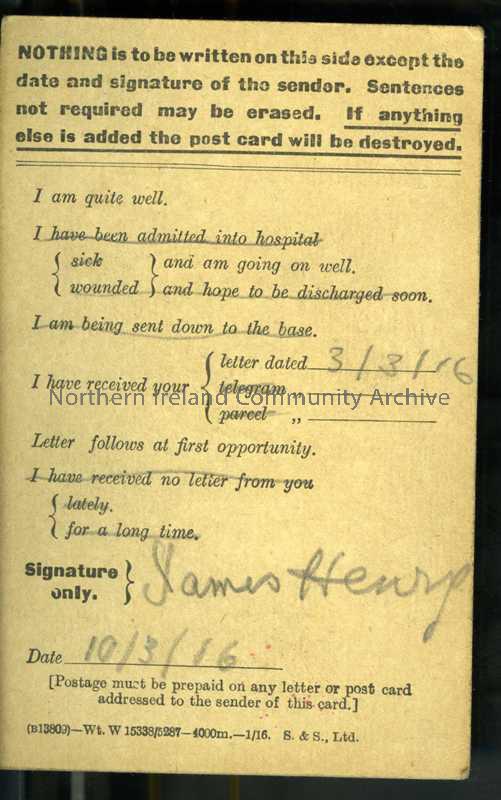 NOTHING is to be written on this side except the
date and signature of the sender. Sentences
not required may be erased. If anything
else is added the post card will be destroyed.
I am quite well.
I have been admitted into hospital
{ sick } and am going on well.
{ wounded } and hope to be discharged soon.
I am being sent down to the base.
I have received your { letter dated 3/3/16
telegram „
parcel „
Northern Ireland Community Archive
Letter follows at first opportunity.
I have received no letter from you
{ lately.
{ for a long time.
Signature only. } James Henry
Date 10/3/16
[Postage must be prepaid on any letter or post card
addressed to the sender of this card.]
(B13809)—Wt. W 15338/5287—4000m.—1/16. S. & S., Ltd.